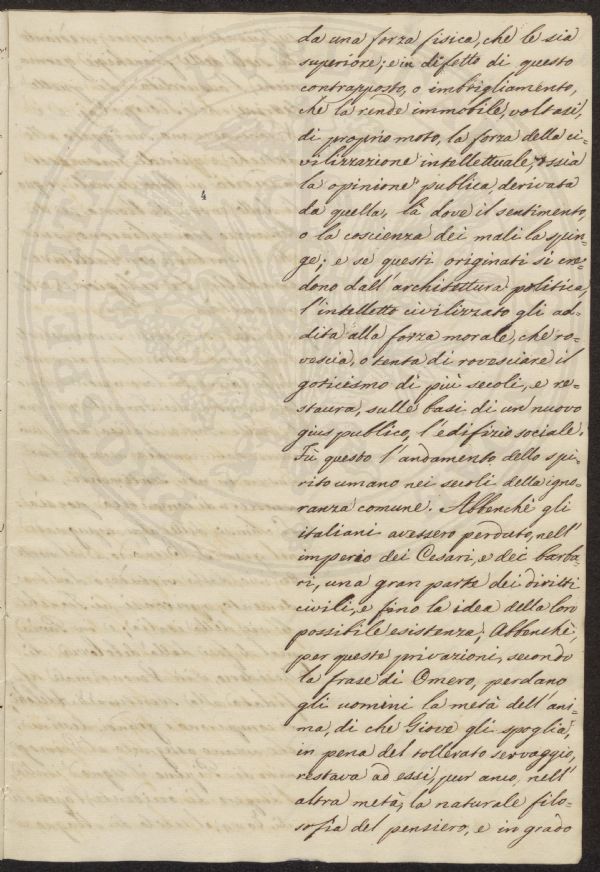 da una forza fisica, che le sia
superiore; e in difetto di questo
contrapposto, o imbrigliamento,
che la rende immobile, voltasi,
di proprio moto, la forza della ci=
vilizzazione intellettuale, ossia
la opinione pubblica, derivata
da quella, là dove il sentimento,
o la coscienza dei mali la spin=
ge; e se questi originati si cre=
dono dall'architettura politica,
l'intelletto civilizzato gli ad=
dita alla forza morale, che ro=
vescia, o tenta di rovesciare il
goticismo di più secoli, e re=
staura, sulle basi di un nuovo
gius publico, l'edifizio sociale.
Fù questo l'andamento dello spi=
rito umano nei secoli della igno=
ranza comune. Abbenchè gli
italiani avessero perduto, nell'
imperio dei Cesari, e dei barba=
ri, una gran parte dei diritti
civili, e fino la idea della loro
possibile esistenza; Abbenchè,
per queste privazioni, secondo
la frase di Omero, perdano
gli uomini la metà dell'ani=
ma, di che Giove gli spoglia,
in pena del tollerato servaggio,
restava ad essi, pur anco, nell'
altra metà, la naturale filo=
sofia del pensiero, e in grado
4